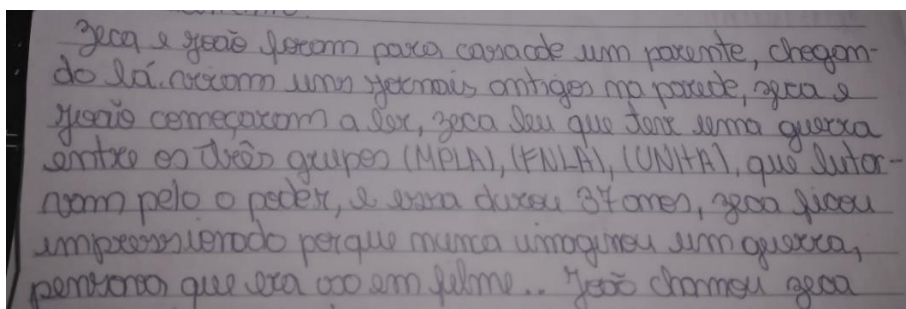 zeca e joão foram para casa de um parente, chegan-
do lá. viram uns jornais antigos na parede, zeca e
joão começaram a ler, zeca leu que teve uma guerra
entre os três grupos (MPLA), (FNLA), (UNITA), que lutar-
vam pelo o poder, e essa durou 37 anos, zeca ficou
impressionado porque nunca imaginou um guerra,
pensava que era só em filme.. João chamou zeca